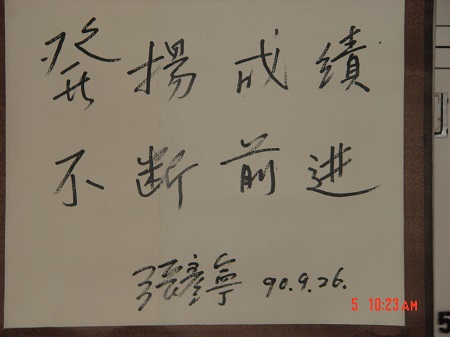 發揚成績
不断前进
張彦寧 90.9.26.
5 10:23 AM
5